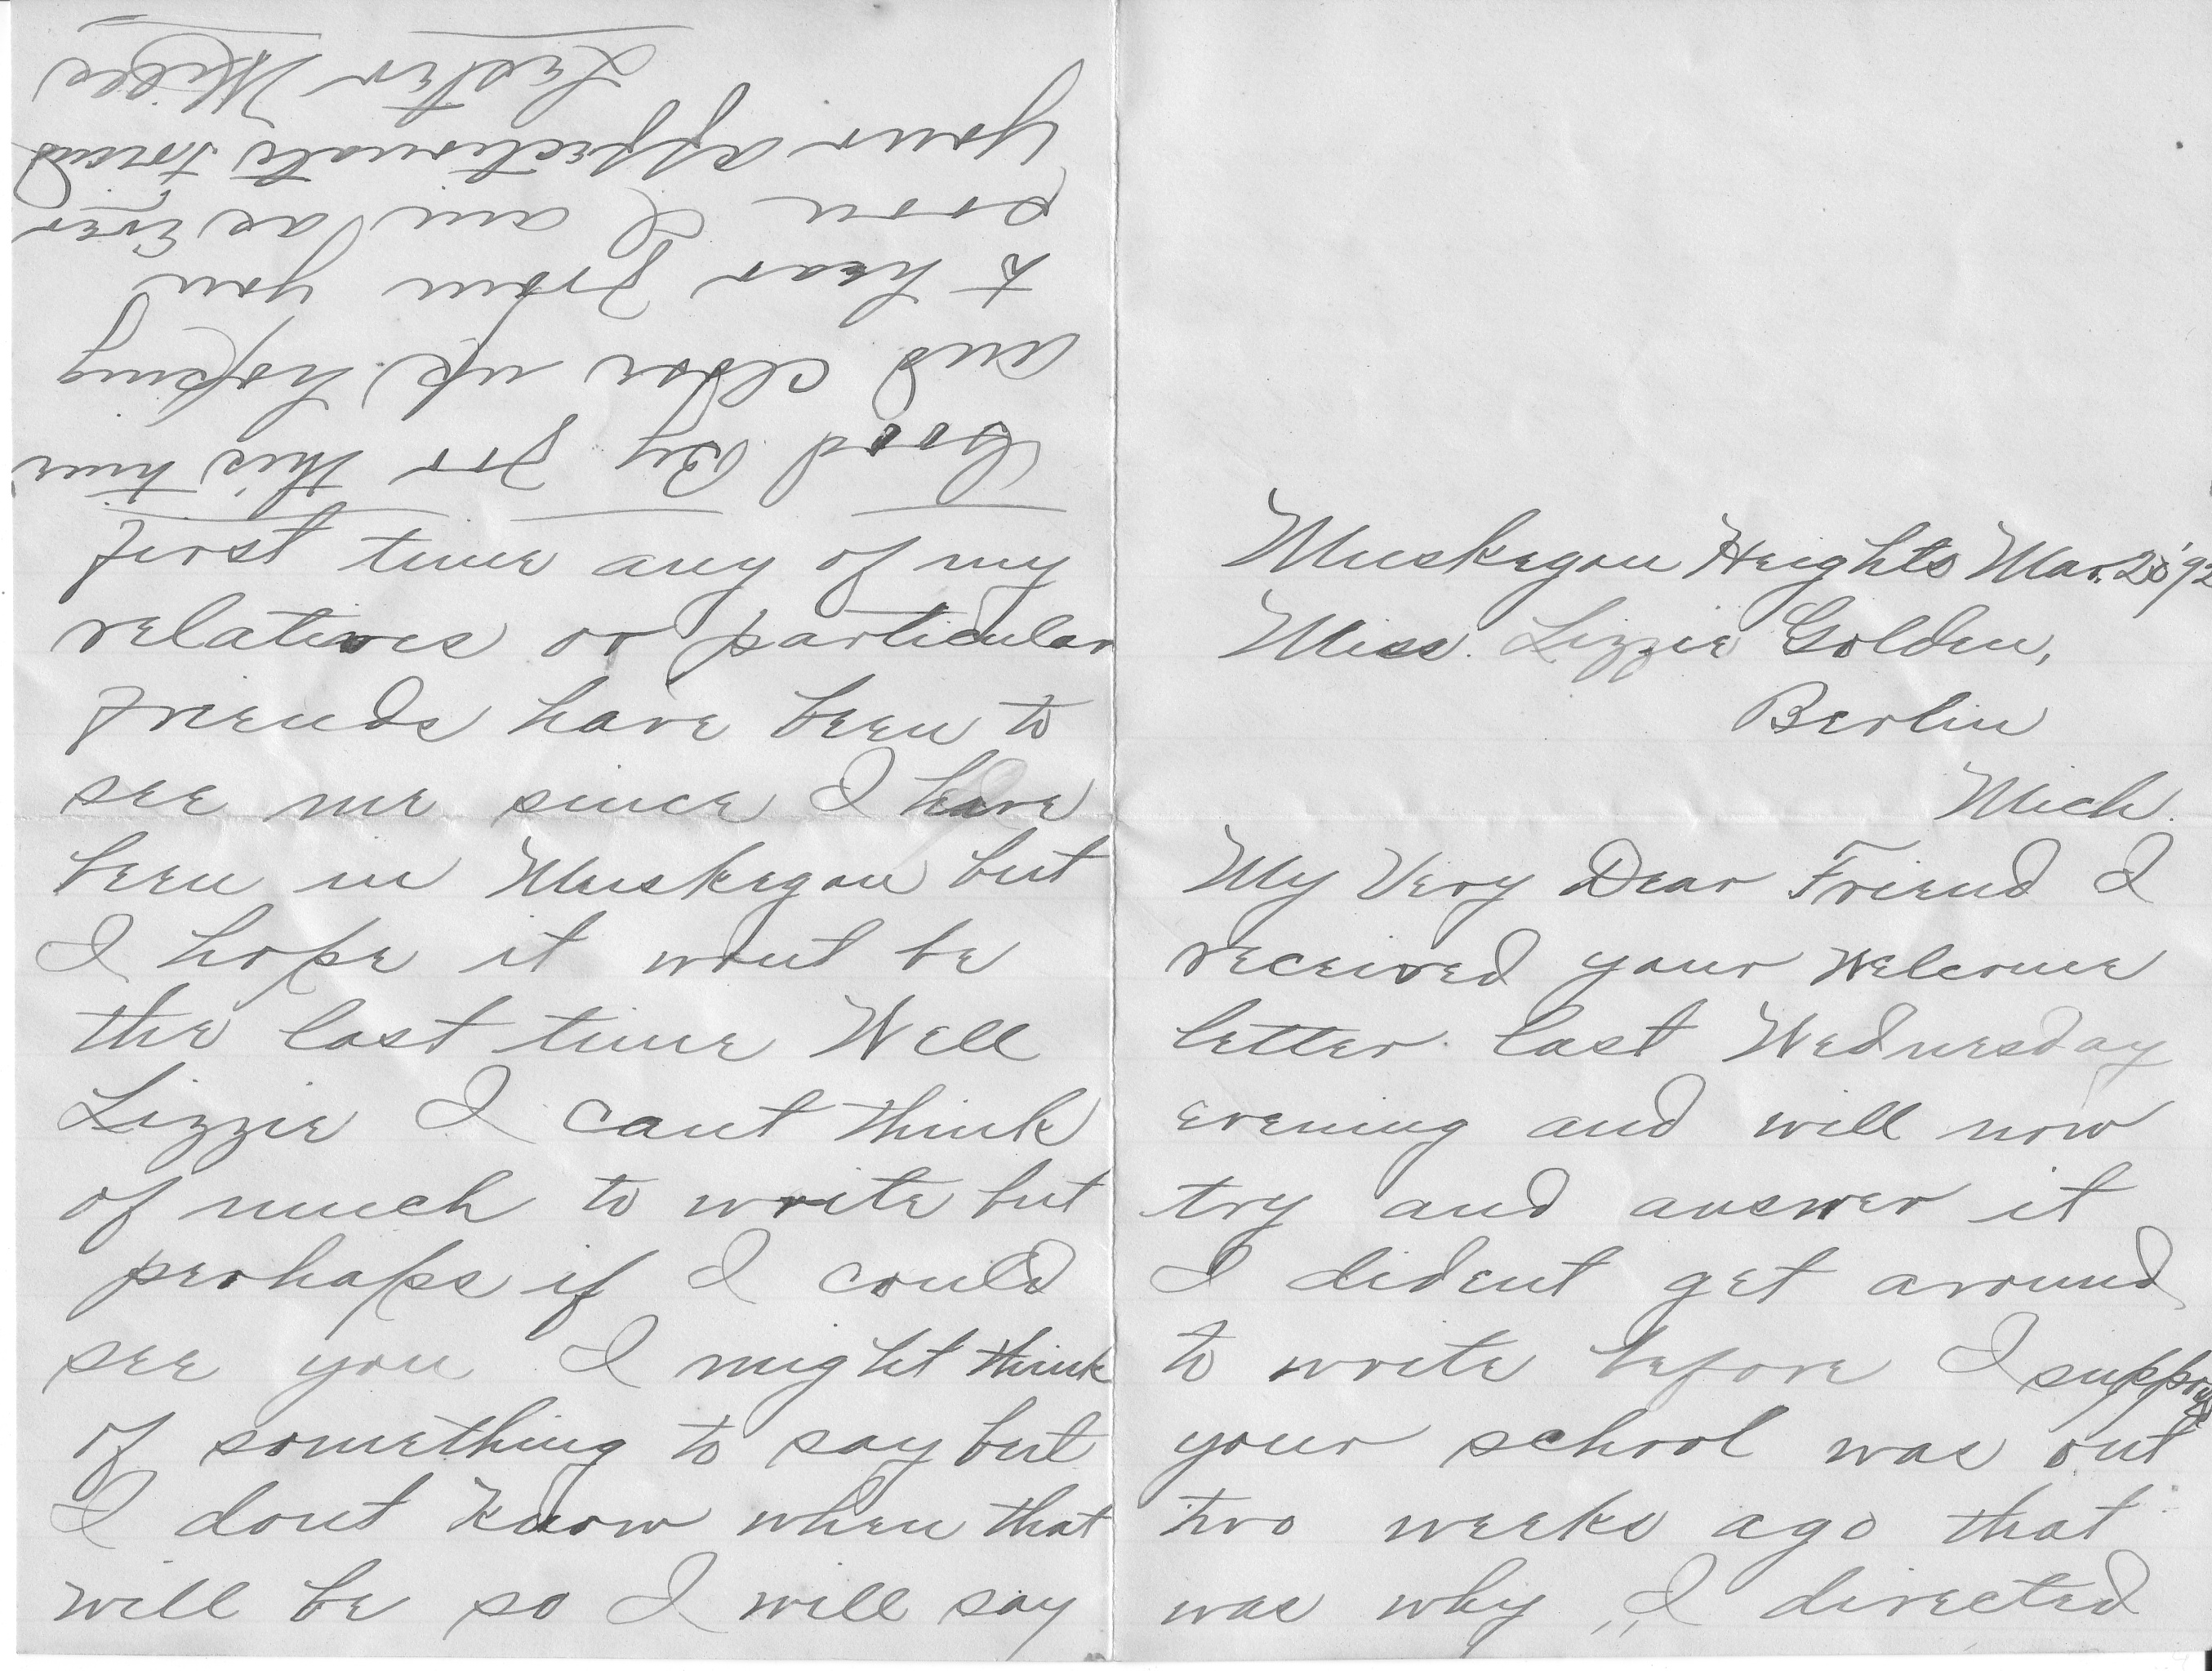 Muskegon Heights Mar. 20 '92
Miss. Lizzie Golden,
Berlin
Mich.
My Very Dear Friend I
received your welcome
letter last Wednesday
evening and will now
try and answer it
I dident get around
to write before I suppose
your school was out
two weeks ago that
was why I directed
first time any of my
relatives or particular
friends have been to
see me since I have
been in Muskegon but
I hope it wont be
the last time Well
Lizzie I cant think
of much to write but
perhaps if I could
see you I might think
of something to say but
I dont know when that
will be so I will say
Good By for this time
and close up hoping
to hear from you
soon I am as Ever
your affectionate friend
Lester